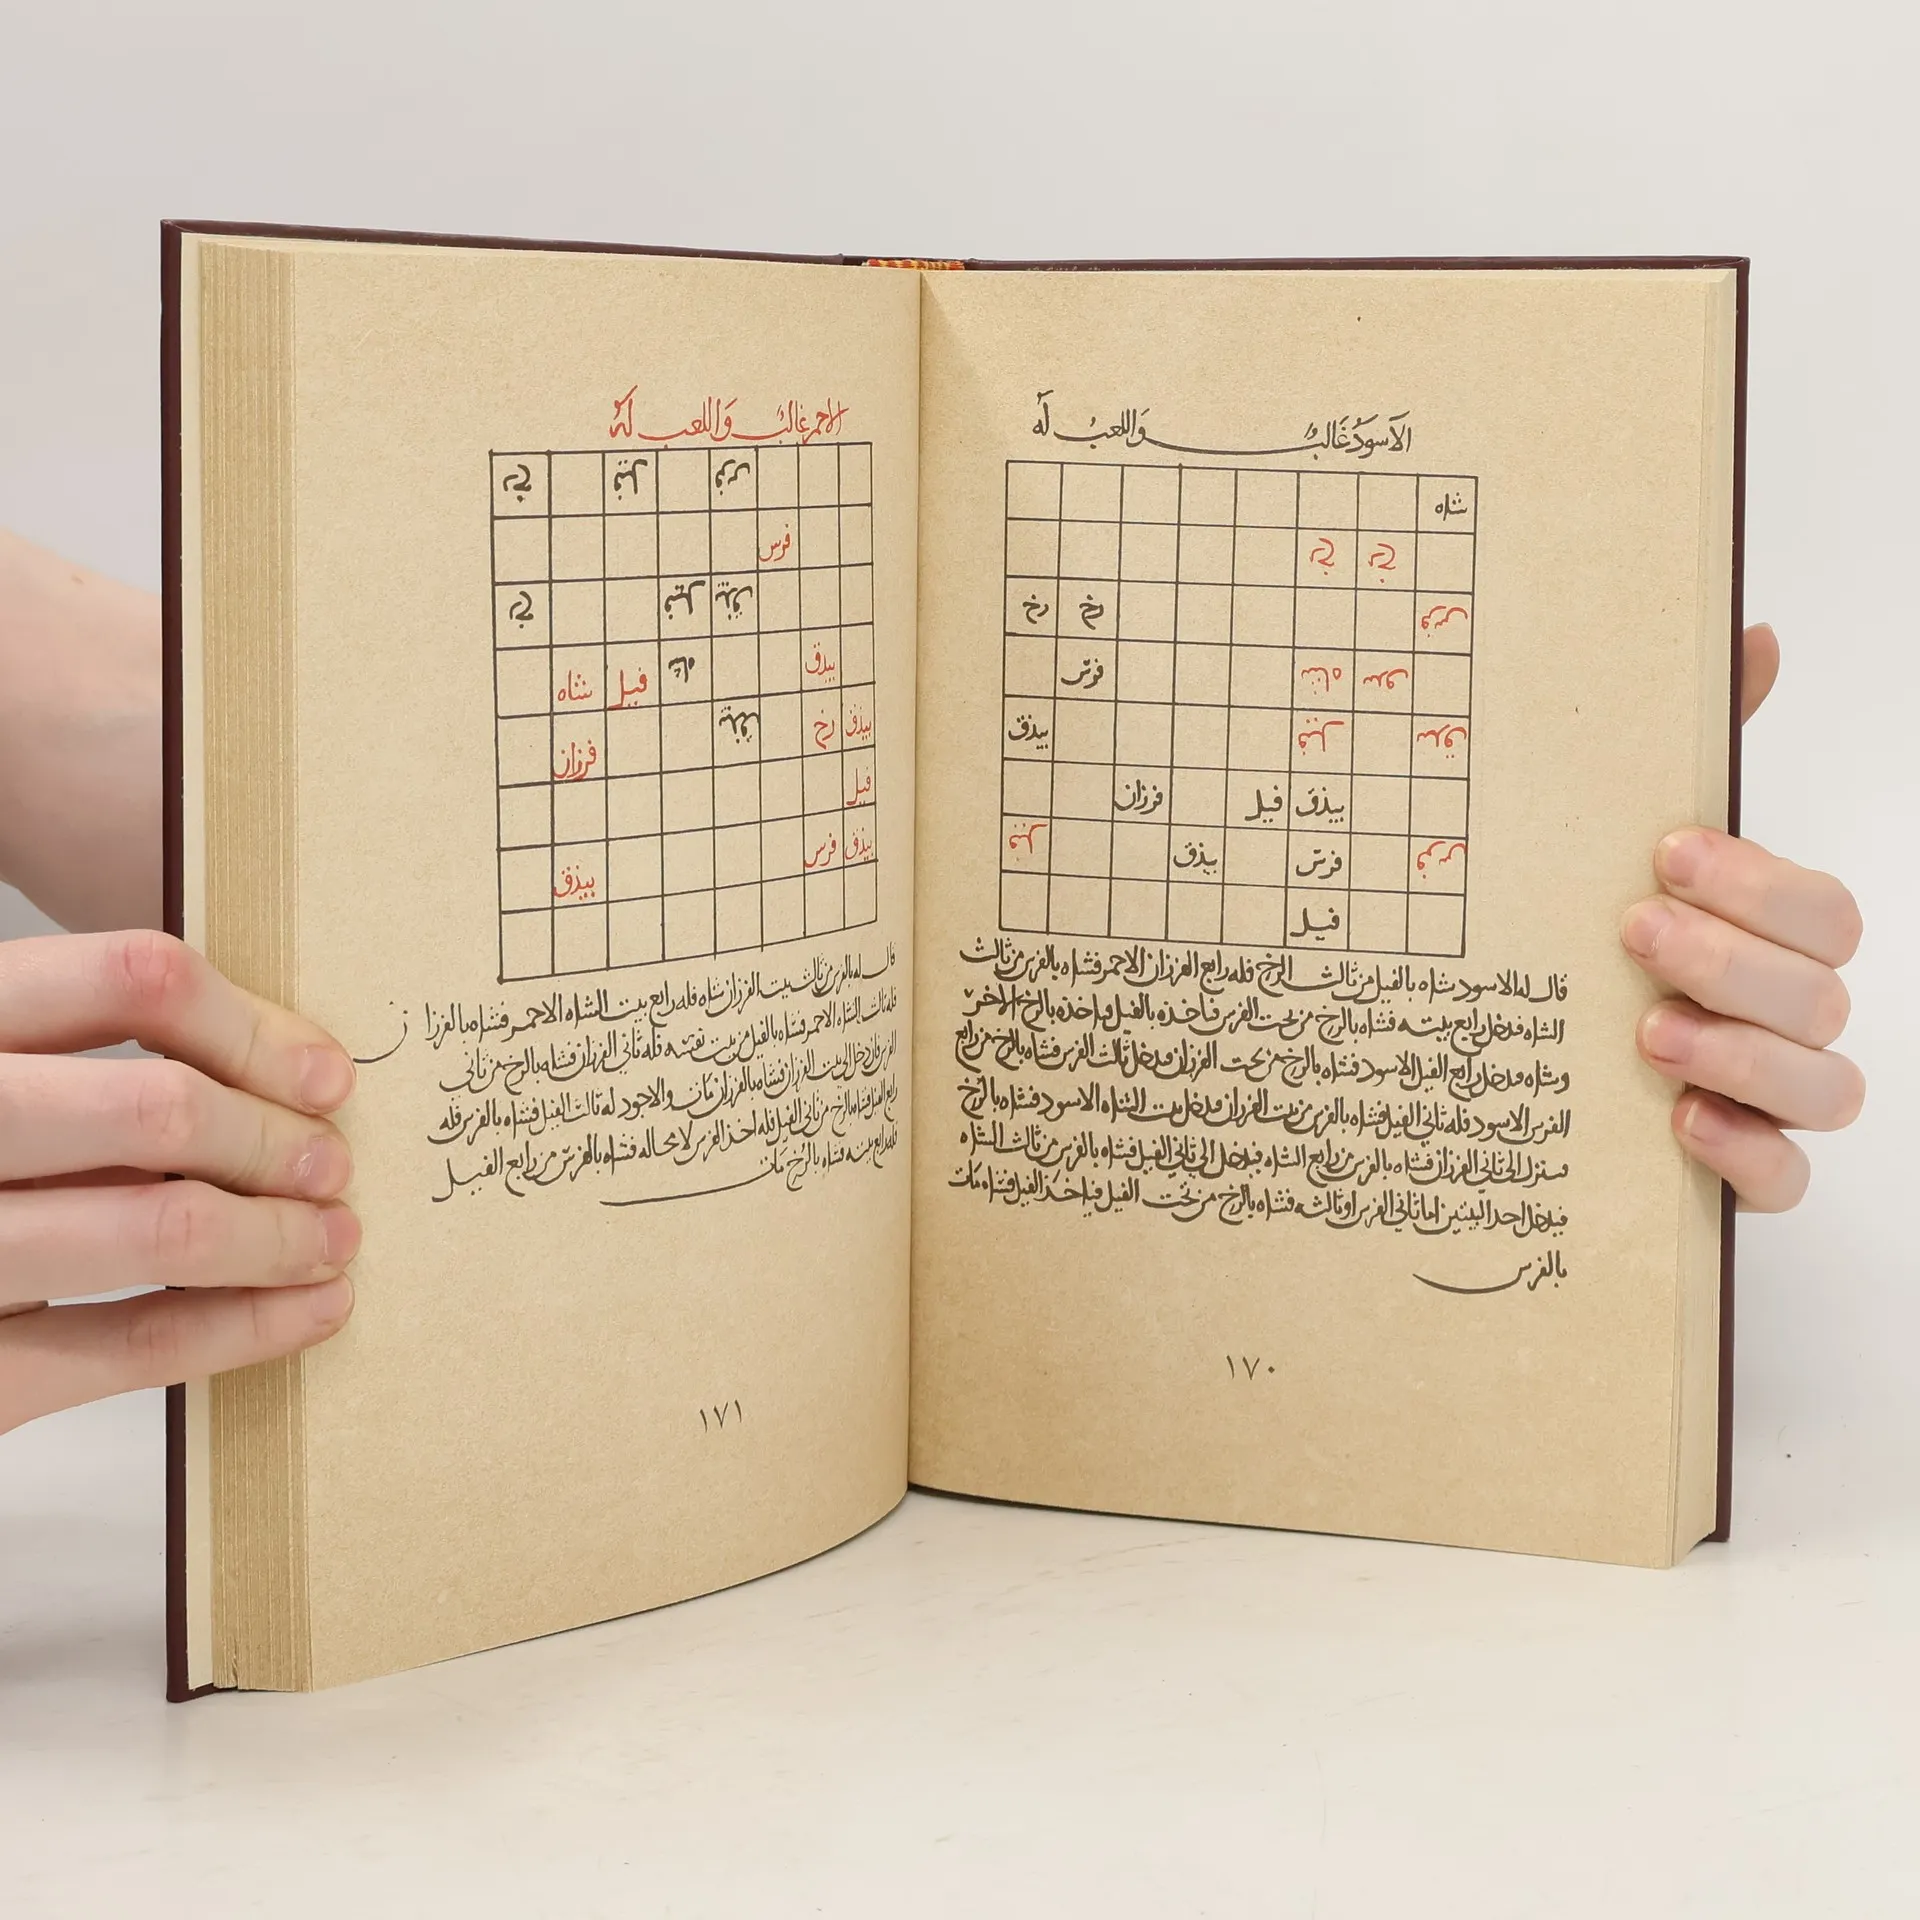 الاسود غالب واللعب له
شاه
رخ رخ
رخ رخ فرس
فرس شاه بيدق
بيذق فيل بيدق
فرزان فيل بيذق
فيل بيذق فرس فرس
فيل
قال له الاسود شاه بالفيل من ثالث الرخ فله رابع الفرزان الاحمر فشاه بالفرس من ثالث
الشاه فدخل رابع بيته فشاه بالرخ من تحت الفرس فياخذه بالفيل فياخذه بالرخ الاخر
وشاه فدخل رابع الفيل الاسود فشاه بالرخ من تحت الفرزان فدخل ثالث الفرس فشاه بالرخ من رابع
الفرس الاسود فله ثاني الفيل فشاه بالفرس من بيت الفرزان فدخل بيت الشاه الاسود فشاه بالرخ
فينزل الى ثاني الفرزان فشاه بالفرس من رابع الشاه فيدخل الى ثاني الفيل فشاه بالفرس من ثالث الشاه
فيدخل احد البيتين اما ثاني الفرس او ثالثه فشاه بالرخ من تحت الفيل فياخذ الفيل فشاه مات
بالفرس
١٧٠
الاحمر غالب واللعب له
رخ فيل فرس
فرس
رخ فيل بيذق
شاه فيل شاه بيدق
فرزان بيذق رخ بيذق
فيل
بيذق فرس بيذق
قال له بالفرس من ثالث بيت الفرزان شاه فله رابع بيت الشاه الاحمر فشاه بالفرزان
فله ثالث الشاه الاحمر فشاه بالفيل من بيت نفسه فله ثاني الفرزان فشاه بالرخ من ثاني
الفرس فان دخل الى بيت الفرزان فشاه بالفرزان مات والاجود له ثالث الفيل فشاه بالفرس فله
رابع الفيل فشاه بالرخ من ثاني الفيل فله اخذ الفرس لا محاله فشاه بالفرس من رابع الفيل
فله رابع بيته فشاه بالرخ مات
١٧١